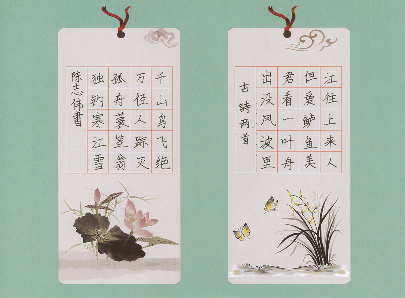 江往上来人
但爱鲈鱼美
君看一叶舟
出没风波里
古詩两首
千山鸟飞绝
万径人踪灭
孤舟蓑笠翁
独钓寒江雪
陈志伟書